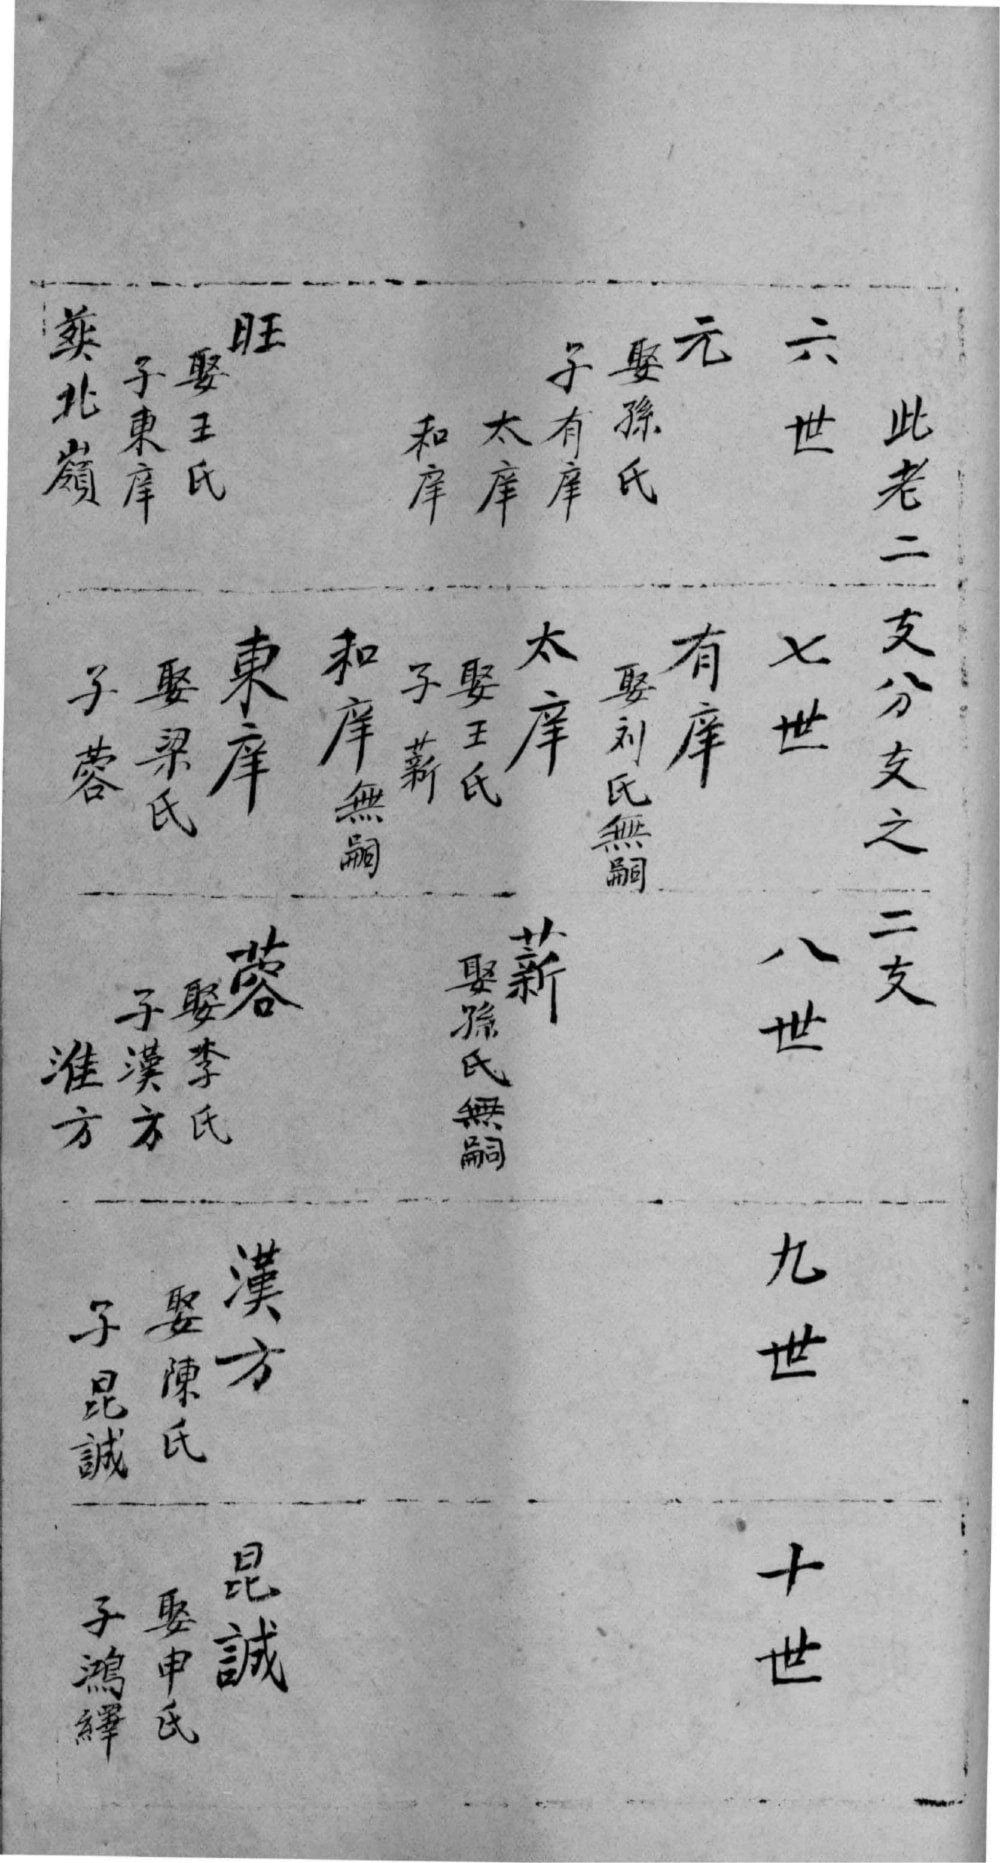 此老二支分支之二支
六世
元
娶孫氏
子有庠
太庠
和庠
旺
娶王氏
子東庠
葬北嶺
七世
有庠
娶刘氏無嗣
太庠
娶王氏
子薪
和庠無嗣
東庠
娶梁氏
子蓉
八世
薪
娶孫氏無嗣
蓉
娶李氏
子漢方
淮方
九世
漢方
娶陳氏
子昆誠
十世
昆誠
娶申氏
子鴻繹